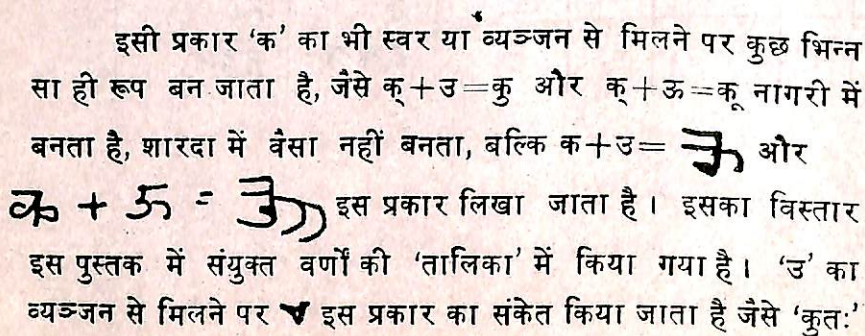 इसी प्रकार ‘क’ का भी स्वर या व्यञ्जन से मिलने पर कुछ भिन्न
सा ही रूप बन जाता है, जैसे क्+उ=कु और क्+ऊ=कू नागरी में
बनता है, शारदा में वैसा नहीं बनता, बल्कि क+उ= और
क + ऊ = इस प्रकार लिखा जाता है। इसका विस्तार
इस पुस्तक में संयुक्त वर्णों की ‘तालिका’ में किया गया है। ‘उ’ का
व्यञ्जन से मिलने पर इस प्रकार का संकेत किया जाता है जैसे ‘कुतः’